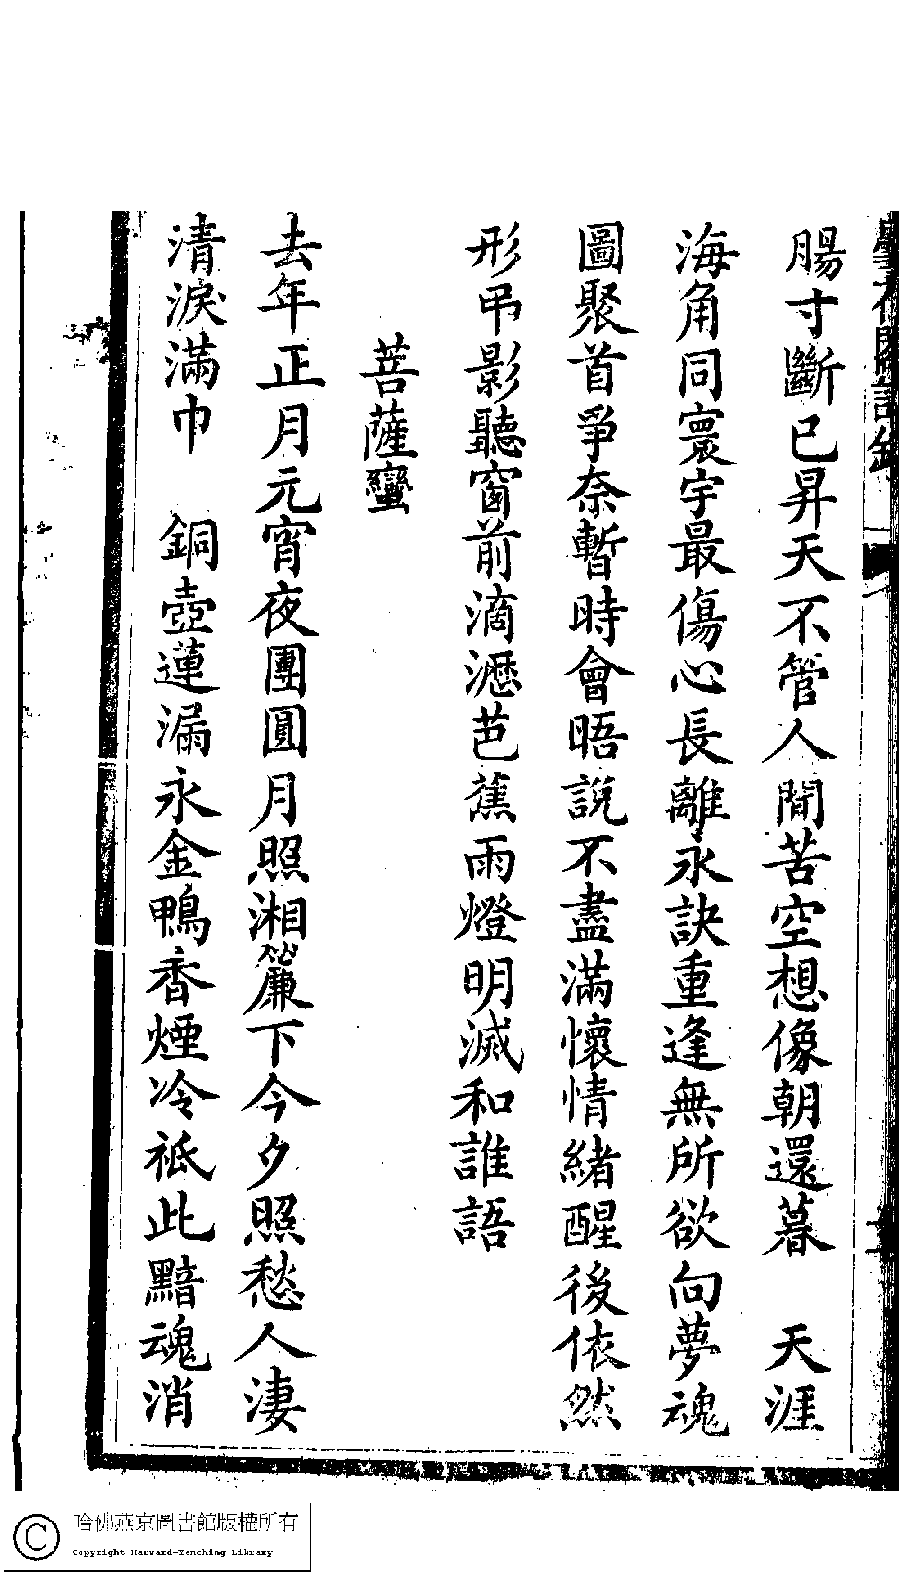 腸寸斷已昇天不管人間苦空想像朝還暮　天涯
海角同寰宇最傷心長離永訣重逢無所欲向夢魂
圖聚首爭奈暫時會晤說不盡滿懷情緒醒後依然
形弔影聽窗前滴瀝芭蕉雨燈明滅和誰語
菩薩蠻
去年正月元宵夜團圓月照湘簾下今夕照愁人淒
清淚滿巾　銅壺蓮漏永金鴨香煙冷祗此黯魂消
哈佛燕京圖書館版權所有
Copyright Harvard-Yenching Library